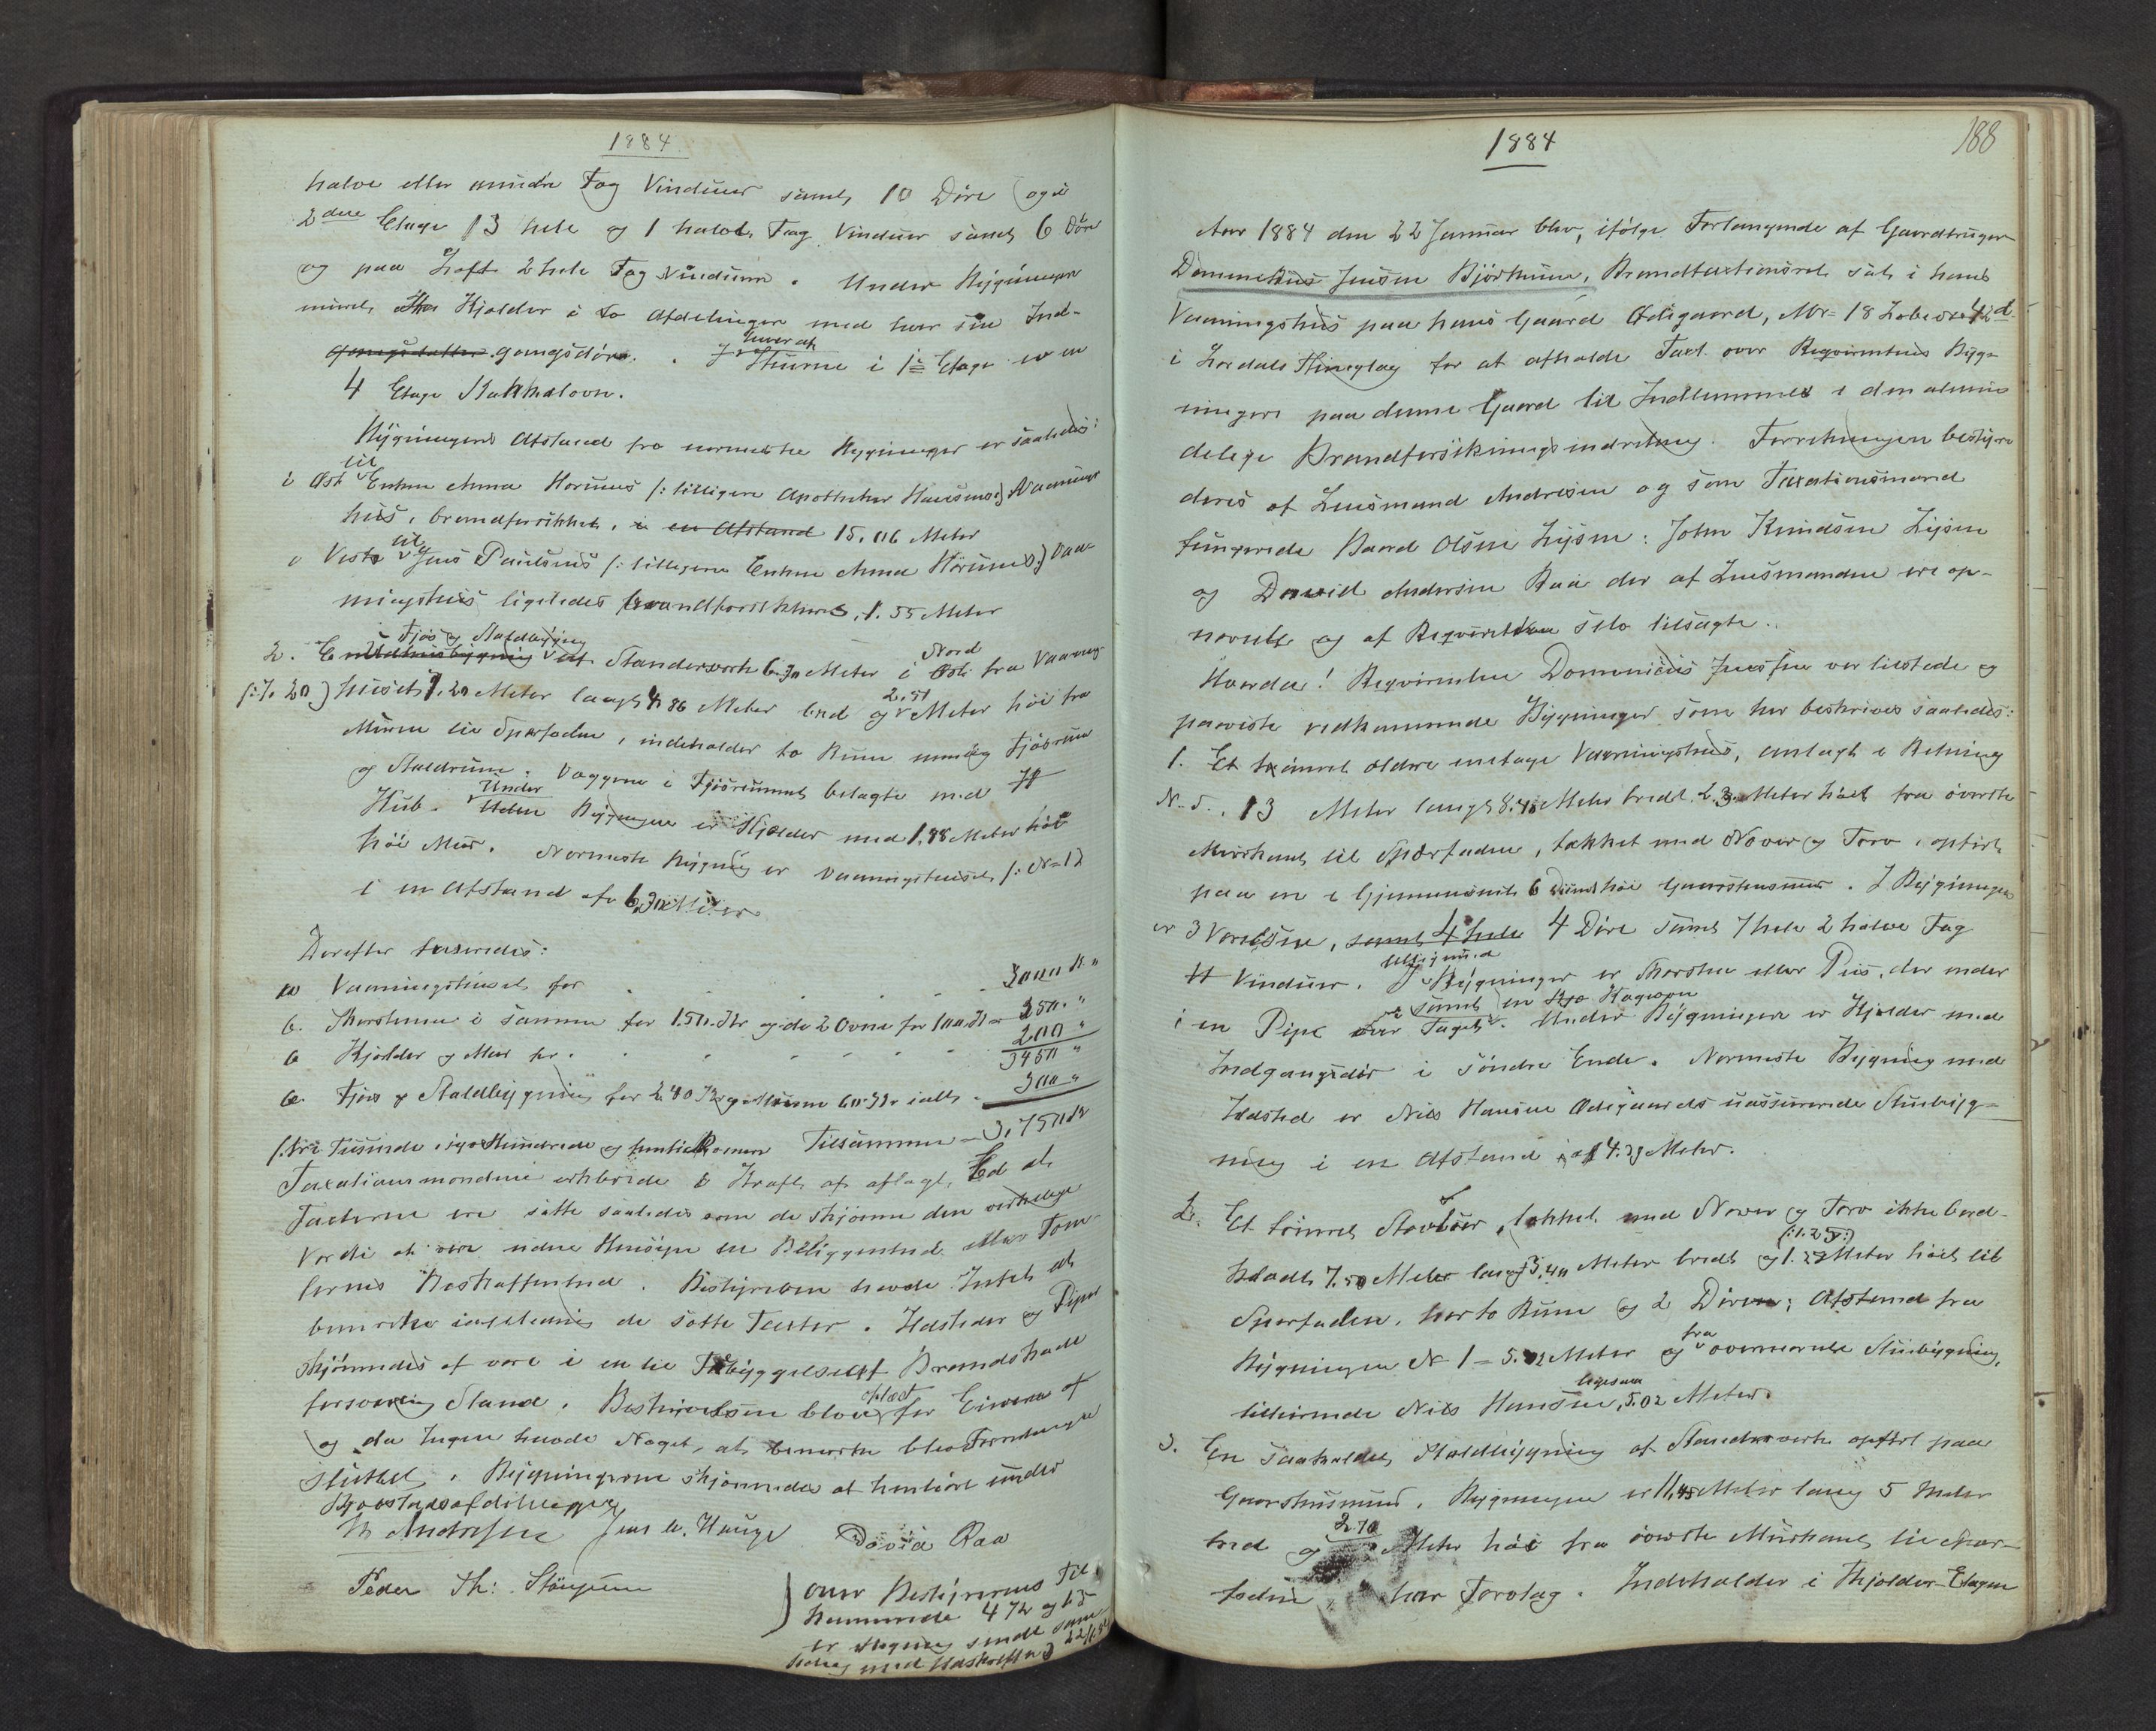 1884
halve eller mindre Fag Vinduer samt 10 Döre og i
2den Etage 13 hele og 1 halvt Fag Vinduer samt 6 Döre
og paa Loft 2 hele Fag Vinduer. Under Bygningen
muret Kjelder i to Afdelinger med hver sin Ind-
gangsdör. I hver af Stuerne i 1ste Etage er en
4 Etage Kakkelovn.
Bygningens Afstand fra nærmeste Bygninger er saaledes:
i Öst til Enken Anna (: tilligere Apotheker Hansens:) Vaanings
hus, brandforsikket, i en Afstand 15,06 Meter
i Vest til Jens Paulsens (: tilligere Enken Anna :) Vaa-
ningshus ligeledes brandforsikkret, 1.55 Meter
2. En Udhusbygning Fjös og Staldbygning af Standerverk 6.30 Meter i Nord Öst fra Vaanings
(: 7.20) huset, 7.20 Meter lang, 4.86 Meter bred og 2.51 Meter höi fra
Muren til Sperfaden, indeholder to Rum nemlig Fjösrum
og Staldrum. Væggene i Fjösrummet belagte med
Under Uden Bygningen er Kjelder med 1,88 Meter höi
höi Mur. Nærmeste Bygning er Vaaningshuset (: No 1)
i en Afstand af 6,30 Meter
Derefter taxeredes:
a Vaaningshuset for 3000 Kr "
b. Skorstene i samme for 150. Kr og de 2 Ovne for 100. Kr = 250. "
c Kjelder og Mur for 200 "
3450 "
Fjös og Staldbygning for 240 Kr og Muren 60 Kr ialt 300 "
(: tre Tusinde syv Hundrede og femti Kroner Tilsammen = 3,750 Kr
Taxationsmændene erklærede i Kraft af aflagt Ed at
Taxterne ere satte saaledes som de skjönne den virkelige
Værdi at være uden Hensyn til Beliggenhed eller Tom-
ternes Beskaffenhed. Bestyreren havde Intet at
bemærke i Anledning de satte Taxter. Ildsteder og Piper
skjönnedes at være i en til Forebyggelse af Brandskade
forsvarlig Stand. Beskrivelsen blev oplæst for Eieren
og da Ingen havde Noget at bemærke blev Forretningen
sluttet. Bygningerne skjönnedes at henhöre under
Kjöbstadsafdelingen
Andresen Jens A. Hauge David Raa
Peder Th: Stöyen
over Bestyrerens Til-
kommende 4 Kr og
er Regning sendt
med Udskriften 22/1.84
1884
188
Aar 1884 den 22 Januar blev, ifölge Forlangende af Gaardbruger
Dominicus Jensen Björkum, Brandtaxtionsret sat i hans
Vaaningshus paa hans Gaard Ödegaard, Mr= 18 Löbe no 42 d
i Lærdals Thinglag for at afholde Taxt over Reqvirentens Byg-
ninger paa denne Gaard til Indlemmelse i den almin
delige Brandforsikringsindretning. Forretningen bestyre
deres af Lensmand Andresen og som Taxationsmænd
fungerede Baard Olsen Lysne: John Knudsen Lysne
og David Andersen Raa der af Lensmanden ere op-
nævnte og af Reqvirenten selv tilsagte.
Hvorda! Reqvirenten Dominicus Jensen var tilstede og
paaviste vedkommende Bygninger som her beskrives saaledes:
1. Et tömret ældre enetage Vaaningshus, anlagt i Retning
N. S. 13 Meter langt 8.40 Meter bredt 2.3 Meter höit fra överste
Murkant til Sperfaden, tækket med Næver og Torv, opfört
paa en i Gjennemsnit 6 höi Graastensmur. I Bygningen
er 3 Værelsen, samt 4 hele 4 Döre samt 7 hele 2 halve Fag
Vinduer. I Bygningen er Skorsten eller Peis, der ender
i en Pipe over Taget samt en Kogeovn. Under Bygningen er Kjelder med
Indgangsdör i söndre Ende. Nærmeste Bygning med
Ildsted er Nils Hansen Ödegaards uassurerede Stuebyg-
ning i en Afstand af 4.29 Meter.
2. Et tömret Stavbur, tækket med Næver og Torv ikke bord-
klædt 7.50 Meter langt 3,40 Meter bredt og 1.25 (: 1.25:) Meter höit til
Sperfaden, har to Rum og 2 Döre; Afstand fra
Bygningen No 1 = 5. Meter og fra overnævnte Stuebygning,
tilhörende Nils Hansen, ligesaa 5.02 Meter.
3. En saakaldet Staldbygning af Standerverk opfört paa
Graastensmur. Bygningen er 11,45 Meter lang 5 Meter
bred og 2.70 Meter höi fra överste Murkant til Sper-
faden har Torvtag. Indeholder i Kjelder-Etagen